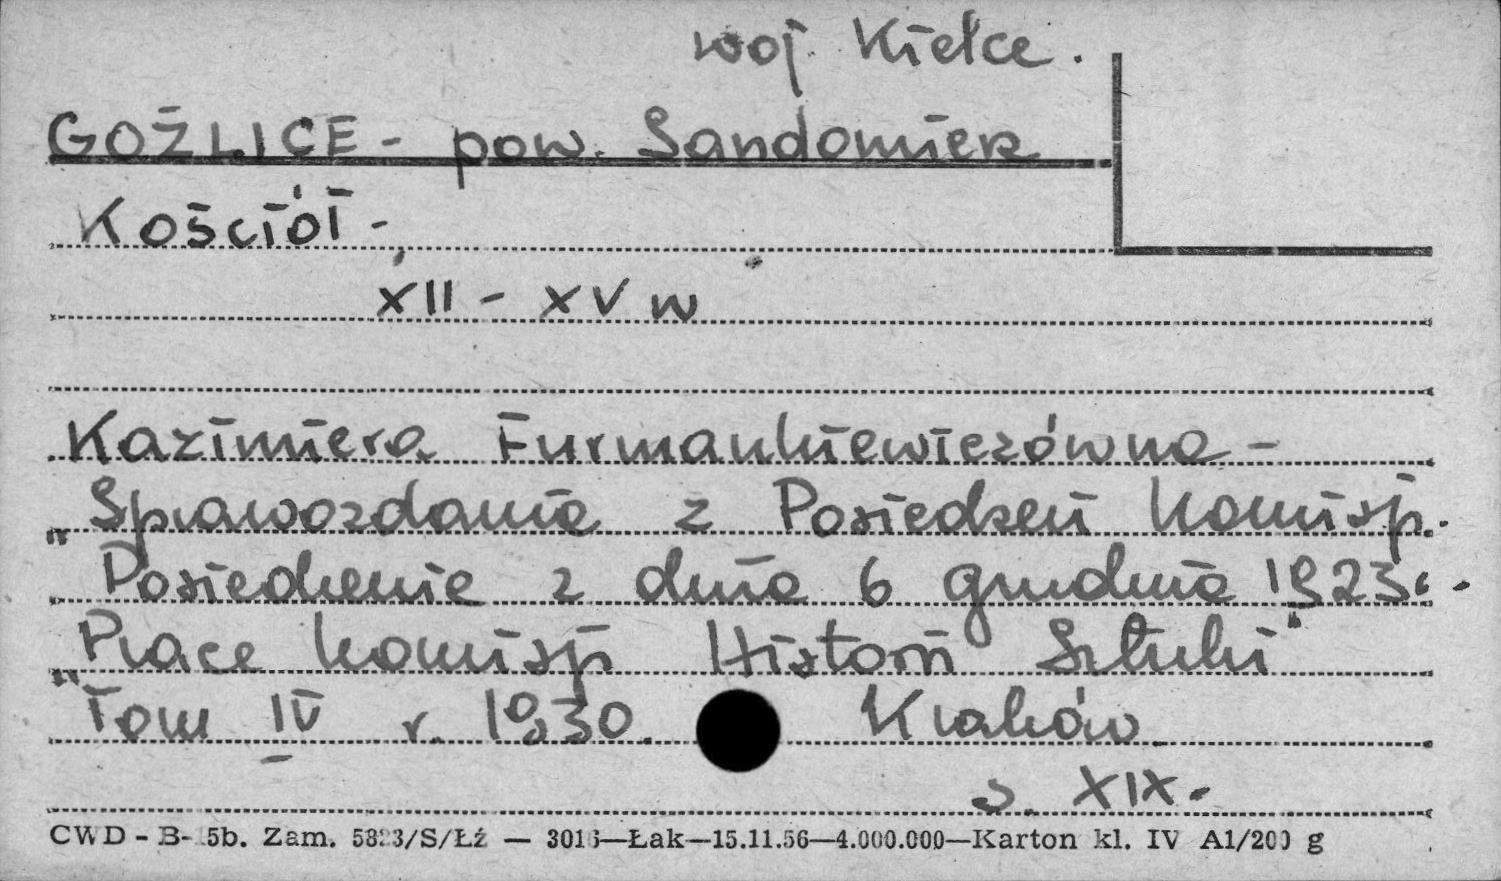 woj. Kielce.
GOŹLICE - pow. Sandomierz
Kościół -
XII - XV w
Kazimiera Furmankiewiczówna -
Sprawozdania z Posiedzeń Komisji.
"Posiedzenie z dnia 6 grudnia 1923".
Prace Komisji Historii Sztuki"
"Tom IV r. 1930. Kraków.
s. XIX.
CWD - B- 5b. Zam. 5823/S/Łź — 3016—Łak—15.11.56—4.000.000—Karton kl. IV A1/200 g